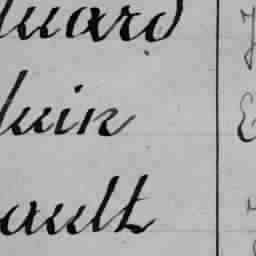 uard
uin
ault